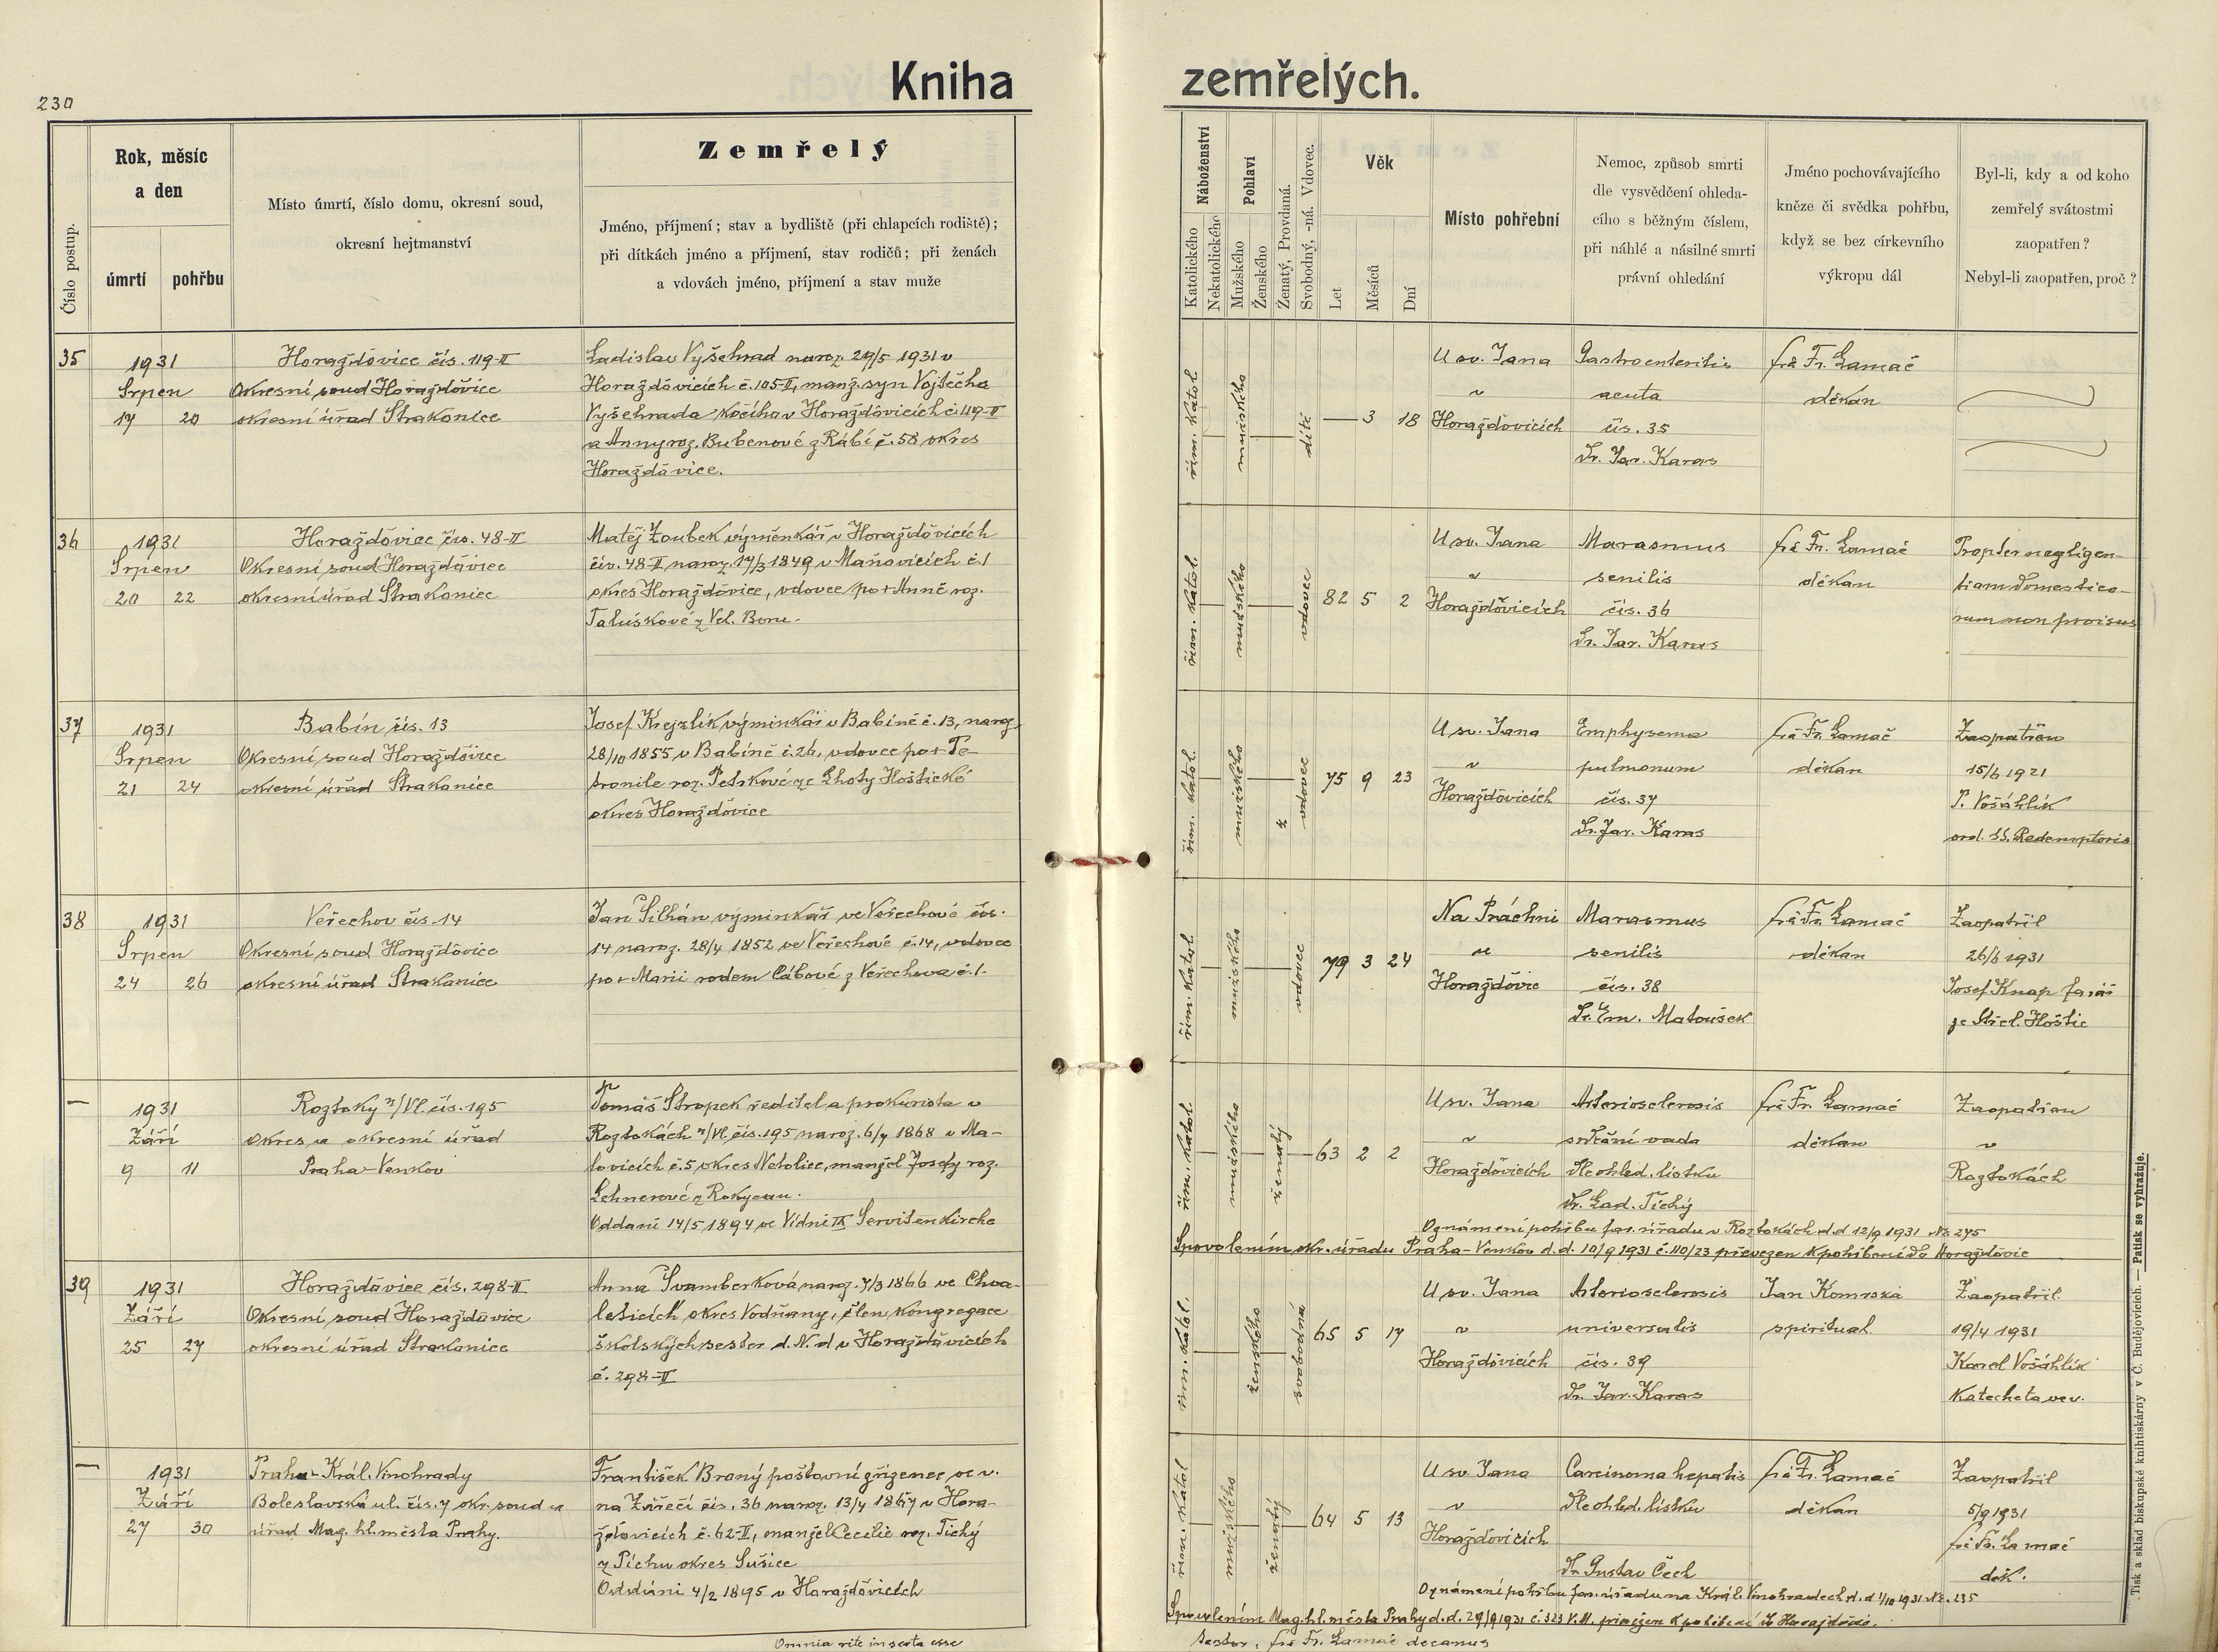 230
Kniha zemřelých.
Číslo postup.
Rok, měsíc
a den
úmrtí
pohřbu
Místo úmrtí, číslo domu, okresní soud,
okresní hejtmanství
Zemřelý
Jméno, příjmení; stav a bydliště (při chlapcích rodiště);
při dítkách jméno a příjmení, stav rodičů; při ženách
a vdovách jméno, příjmení a stav muže
Náboženství
Katolického
Nekatolického
Pohlaví
Mužského
Ženského
Ženatý, Provdaná.
Svobodný, -ná. Vdovec.
Věk
Let
Měsíců
Dní
Místo pohřební
Nemoc, způsob smrti
dle vysvědčení ohleda-
cího s běžným číslem,
při náhlé a násilné smrti
právní ohledání
Jméno pochovávajícího
kněze či svědka pohřbu,
když se bez církevního
výkropu dál
Byl-li, kdy a od koho
zemřelý svátostmi
zaopatřen?
Nebyl-li zaopatřen, proč?
35
1931
Srpen
17 20
Horažďovice čís. 119-II
Okresní soud Horažďovice
okresní úřad Strakonice
Ladislav Vyšehrad naroz. 29/5 1931 v
Horažďovicích č. 105-II, manž. syn Vojtěcha
Vyšehrada kočího v Horažďovicích č. 119-II
a Anny roz. Bubenové z Rábí č. 58 okres
Horažďovice.
řím. katol.
mužského
dítě
— 3 18
U sv. Jana
v
Horažďovicích
Gastroenteritis
acuta
čís. 35
Dr. Jar. Karas
frá Fr. Lamač
děkan
36
1931
Srpen
20 22
Horažďovice čís. 48-II
Okresní soud Horažďovice
okresní úřad Strakonice
Matěj Zoubek výměnkář v Horažďovicích
čís. 48-II naroz. 17/3 1849 v Maňovicích č. 1
okres Horažďovice, vdovec po + Anně roz.
Taluškové z Vel. Boru.
řím. katol.
mužského
vdovec
82 5 2
U sv. Jana
v
Horažďovicích
Marasmus
senilis
čís. 36
Dr. Jar. Karas
frá Fr. Lamač
děkan
Propter negligen-
tiam domestico-
rum non proisus
37
1931
Srpen
21 24
Babín čís. 13
Okresní soud Horažďovice
okresní úřad Strakonice
Josef Krejzlík výminkář v Babíně č. 13, naroz.
28/10 1855 v Babíně č. 26, vdovec po + Pe-
tronile roz. Petrkové ze Lhoty Hoštické
okres Horažďovice
řím. katol.
mužského
ž
vdovec
75 9 23
U sv. Jana
v
Horažďovicích
Emphysema
pulmonum
čís. 37
Dr. Jar. Karas
frá Fr. Lamač
děkan
Zaopatřen
15/6 1921
P. Vošáhlík
ord. SS. Redemptoris
38
1931
Srpen
24 26
Veřechov čís. 14
Okresní soud Horažďovice
okresní úřad Strakonice
Jan Šilhán výminkář ve Veřechově čís.
14 naroz. 28/4 1852 ve Veřechově č. 14, vdovec
po + Marii rodem Cábové z Veřechova č. 1.
řím. katol.
mužského
vdovec
79 3 24
Na Práchni
u
Horažďovic
Marasmus
senilis
čís. 38
Dr. Em. Matoušek
frá Fr. Lamač
děkan
Zaopatřil
26/6 1931
Josef Knap farář
ze Střel. Hoštic
—
1931
Září
9 11
Roztoky n/Vl. čís. 195
Okres a okresní úřad
Praha-Venkov
Tomáš Stropek ředitel a prokurista v
Roztokách n/Vl. čís. 195 naroz. 6/7 1868 v Ma-
lovicích č. 5 okres Netolice, manžel Josefy roz.
Lehnerové z Rokycan.
Oddaní 14/5 1894 ve Vídni IX Servitenkirche
řím. katol.
mužského
ženatý
63 2 2
U sv. Jana
v
Horažďovicích
Arteriosclerosis
srdeční vada
dle ohled. lístku
Dr. Lad. Tichý
frá Fr. Lamač
děkan
Zaopatřen
v
Roztokách
Oznámení pohřbu far. úřadu v Roztokách d.d. 12/9 1931 No. 275
S povolením okr. úřadu Praha-Venkov d.d. 10/9 1931 č. 110/23 převezen k pohřbení do Horažďovic
39
1931
Září
25 27
Horažďovice čís. 298-II
Okresní soud Horažďovice
okresní úřad Strakonice
Anna Švamberková naroz. 7/3 1866 ve Chva-
lešicích okres Vodňany, člen kongregace
školských sester d. N. d v Horažďovicích
č. 298-II
řím. katol.
ženského
svobodná
65 5 17
U sv. Jana
v
Horažďovicích
Arteriosclerosis
universalis
čís. 39
Dr. Jar. Karas
Jan Komrska
spirituál
Zaopatřil
19/4 1931
Karel Vošáhlík
Katecheta ve v.
—
1931
Září
27 30
Praha-Král. Vinohrady
Boleslavská ul. čís. 7 okr. soud a
úřad Mag. hl. města Prahy.
František Braný poštovní zřízenec ve v.
na Zářečí čís. 36 naroz. 13/4 1867 v Hora-
žďovicích č. 62-II, manžel Cecilie roz. Tichý
z Píchu okres Sušice
Oddáni 4/2 1895 v Horažďovicích
řím. katol
mužského
ženatý
64 5 13
U sv. Jana
v
Horažďovicích
Carcinoma hepatis
dle ohled. lístku
Dr. Gustav Čech
frá Fr. Lamač
děkan
Zaopatřil
5/9 1931
frá Fr. Lamač
děk.
Oznámení pohřbu far. úřadu na Král. Vinohradech d.d. 1/10 1931 No. 235
S povolením Mag. hl. města Prahy d.d. 29/9 1931 č. 323 V.M. převezen k pohřbení do Horažďovic.
Omnia rite inserta esse
testor: frá Fr. Lamač decanus
Tisk a sklad biskupské knihtiskárny v Č. Budějovicích. — Patisk se vyhražuje.